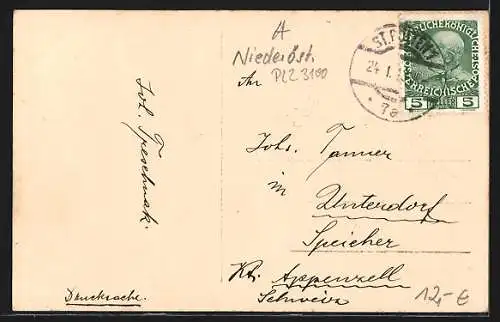 A
Niederöst.
PLZ 3100
ST. PÖLTEN
24. I.
* 7a
KAISERLICHEKÖNIGLICHE
ÖSTERREICHISCHE
5 HELLER 5
Joh. Treschnak.
An
Johs. Tanner
in
Unterdorf
Speicher
Kt. Appenzell
Schweiz
Drucksache.
12,- €